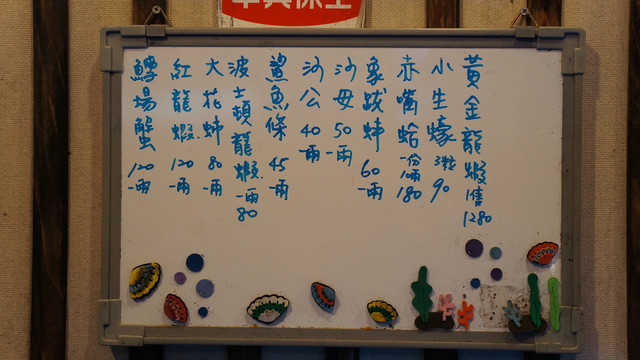 黃金龍蝦1隻1280
小生蠔3粒90
赤嘴蛤一份10兩180
象跋蚌60一兩
沙母50一兩
沙公40一兩
鯊魚條45一兩
波士頓龍蝦一兩80
大花蚌80一兩
紅龍蝦120一兩
鱈場蟹120一兩